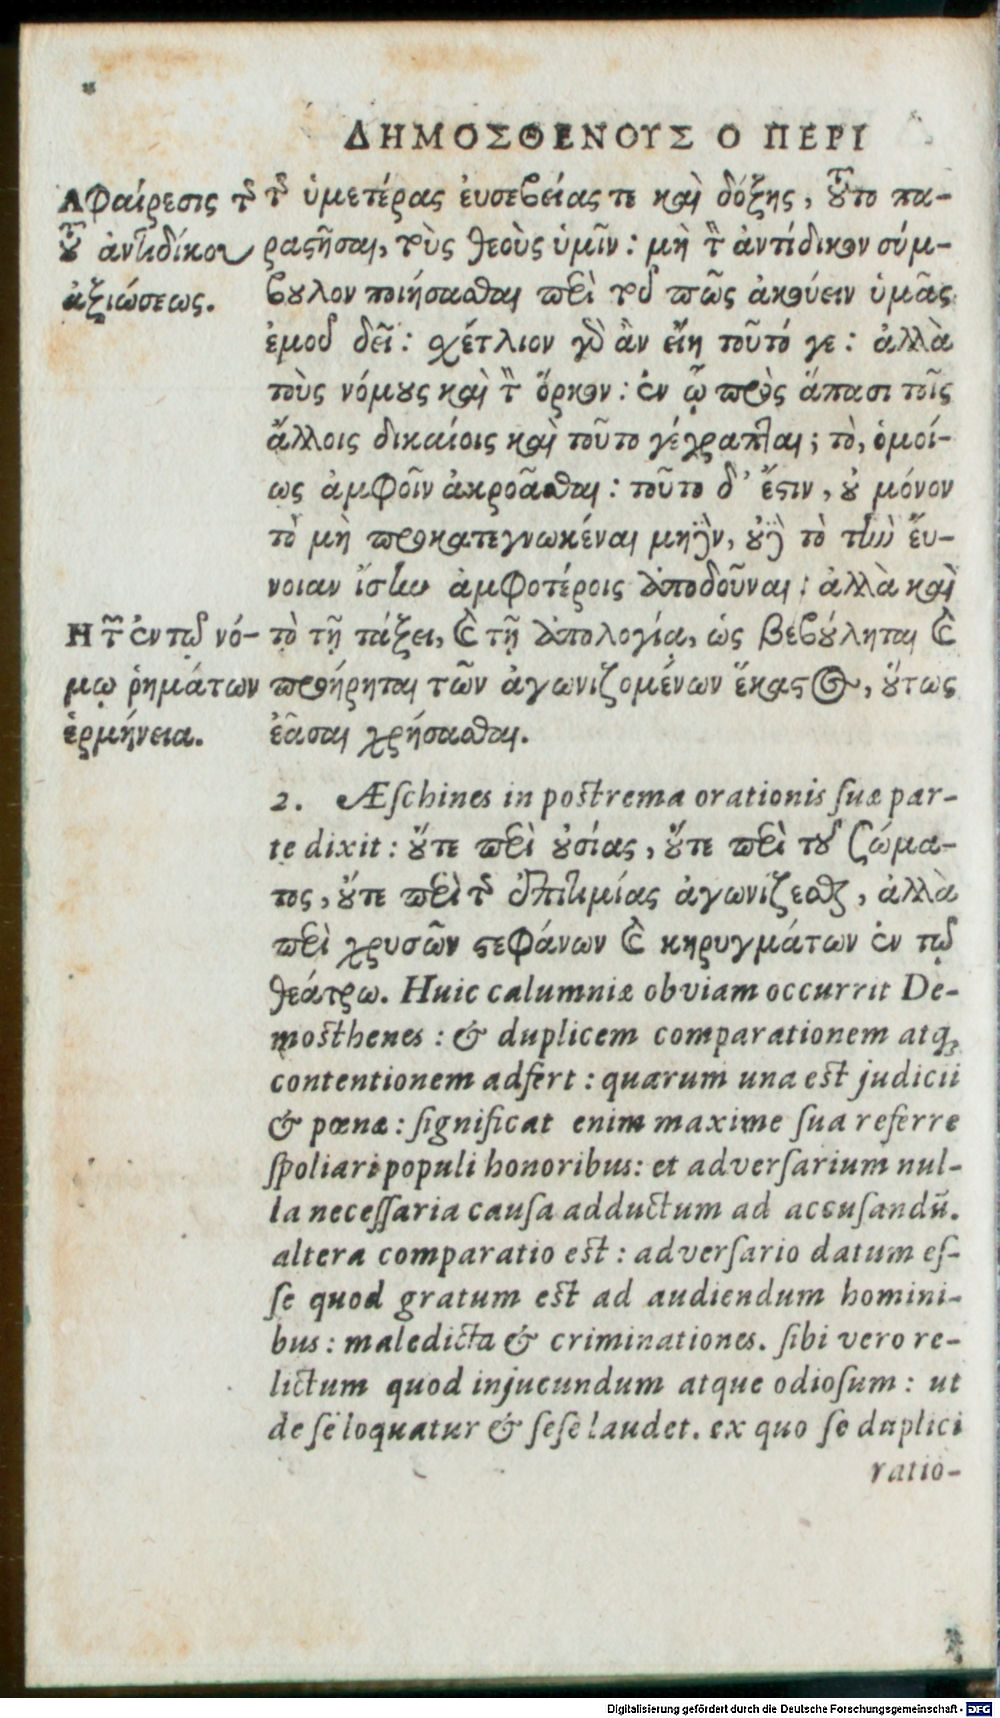 ΔΗΜΟΣΘΕΝΟΥΣ Ο ΠΕΡΙ
Αφαίρεσις τῆς
τοῦ ἀντιδίκου
ἀξιώσεως.
τῆς ὑμετέρας ἐυσεβείας τε καὶ δόξης, τοῦτο πα-
ραστῆσαι, τοὺς θεοὺς ὑμῖν: μὴ τὸν ἀντίδικον σύμ-
βουλον ποιήσασθαι περὶ τοῦ πῶς ἀκούειν ὑμᾶς
ἐμοῦ δεῖ: σχέτλιον γὰρ ἂν εἴη τοῦτό γε: ἀλλὰ
τοὺς νόμους καὶ τὸν ὅρκον: ἐν ᾧ πρὸς ἅπασι τοῖς
ἄλλοις δικαίοις καὶ τοῦτο γέγραπται; τὸ, ὁμοί-
ως ἀμφοῖν ἀκροᾶσθαι: τοῦτο δ' ἔστιν, οὐ μόνον
τὸ μὴ προκατεγνωκέναι μηδὲν, οὐδὲ τὸ τὴν ἔυ-
νοιαν ἴσην ἀμφοτέροις ἀποδοῦναι: ἀλλὰ καὶ
Η τῶν ἐν τῷ νό-
μῳ ῥημάτων
ἑρμήνεια.
τὸ τῇ τάξει, καὶ τῇ ἀπολογίᾳ, ὡς βεβούληται καὶ
προῄρηται τῶν ἀγωνιζομένων ἕκαστος, οὕτως
ἐᾶσαι χρήσασθαι.
2. Æſchines in postrema orationis ſuæ par-
te dixit: οὔτε περὶ οὐσίας, οὔτε περὶ τοῦ ζώμα-
τος, οὔτε περὶ τῆς ἐπιτιμίας ἀγωνίζεσθαι, ἀλλὰ
περὶ χρυσῶν στεφάνων καὶ κηρυγμάτων ἐν τῷ
θεάτρῳ. Huic calumniæ obviam occurrit De-
mosthenes: & duplicem comparationem atq́;
contentionem adfert: quarum una est judicii
& pœnæ: ſignificat enim maxime ſua referre
ſpoliari populi honoribus: et adverſarium nul-
la neceſſaria cauſa adductum ad accuſandū.
altera comparatio est: adverſario datum eſ-
ſe quod gratum est ad audiendum homini-
bus: maledicta & criminationes. ſibi vero re-
lictum quod injucundum atque odioſum: ut
de ſe loquatur & ſeſe laudet. ex quo ſe duplici
ratio-
Digitalisierung gefördert durch die Deutsche Forschungsgemeinschaft - DFG